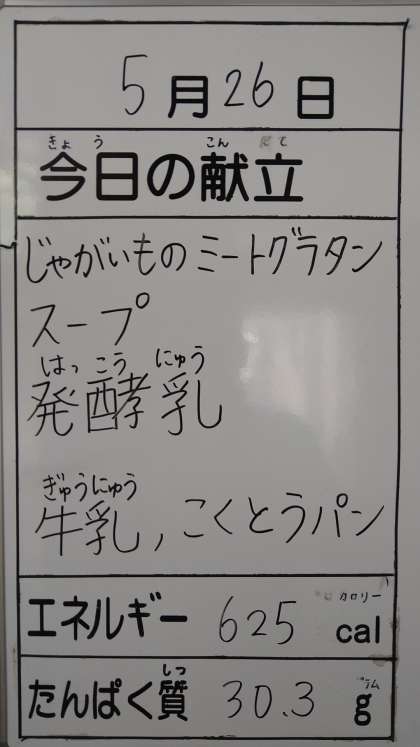 5月26日
きょう こんだて
今日の献立
じゃがいものミートグラタン
スープ
はっこう にゅう
発酵乳
ぎゅうにゅう
牛乳,こくとうパン
カロリー
エネルギー 625 cal
しつ グラム
たんぱく質 30.3 g